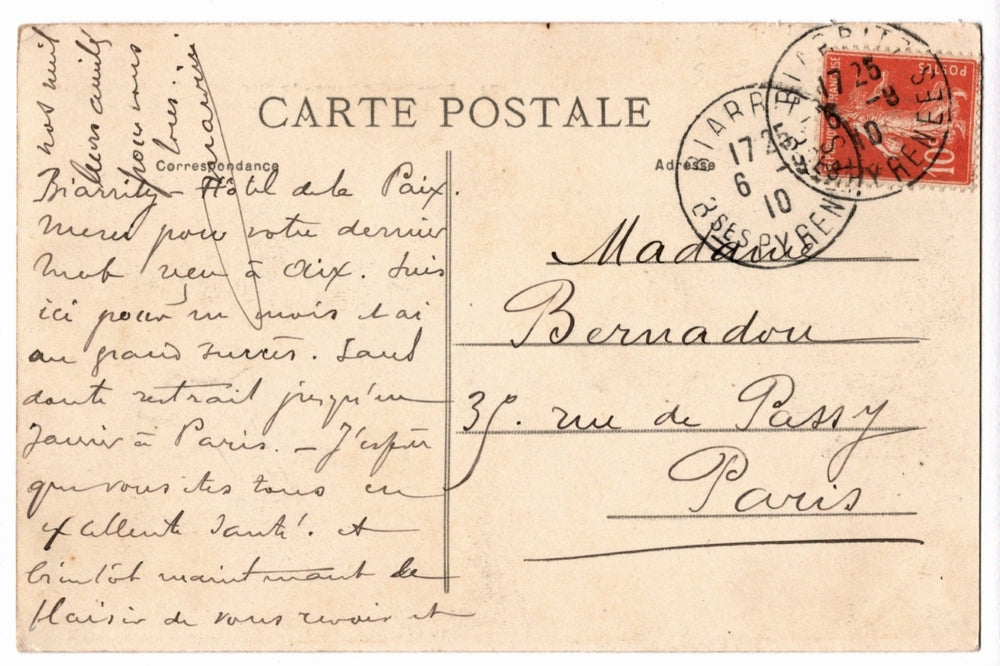 CARTE POSTALE
Correspondance
Adresse
Biarritz - Hôtel de la Paix.
Merci pour votre dernier
mot reçu à Aix. Suis
ici pour un mois et ai
un grand succès. Sans
doute retrait jusqu'en
Janvier à Paris. - J'espère
que vous êtes tous en
excellente santé. et
bientôt maintenant le
plaisir de vous revoir et
nos
pour vous
tous.
Madame
Bernadou
39. rue de Passy
Paris
BIARRITZ
17 25
6 - 9
10
BSES PYRENEES
BIARRITZ
17 25
6 - 9
10
PYRENEES
POSTES
10